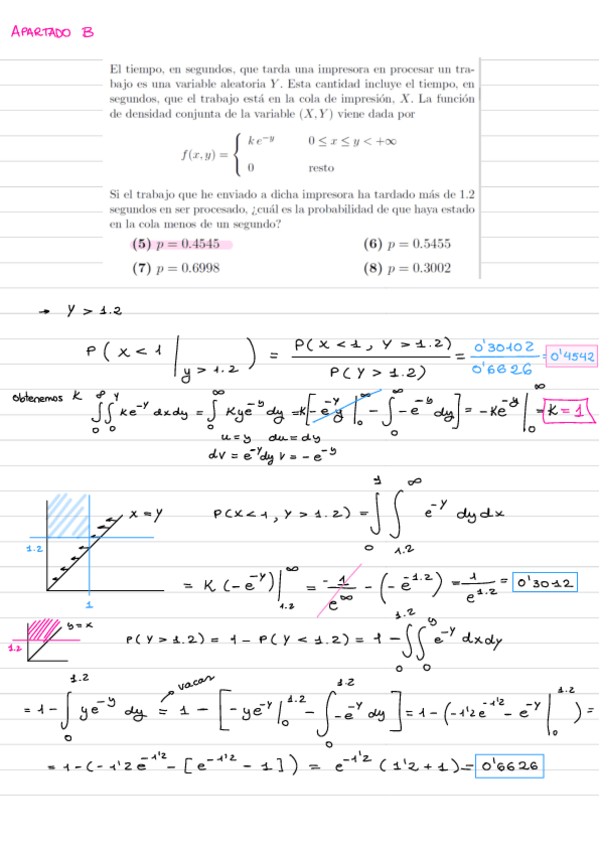 APARTADO B
El tiempo, en segundos, que tarda una impresora en procesar un tra-
bajo es una variable aleatoria Y. Esta cantidad incluye el tiempo, en
segundos, que el trabajo está en la cola de impresión, X. La función
de densidad conjunta de la variable (X, Y) viene dada por
f(x, y) = { k e^{-y}   0 ≤ x ≤ y < +∞
0   resto
Si el trabajo que he enviado a dicha impresora ha tardado más de 1.2
segundos en ser procesado, ¿cuál es la probabilidad de que haya estado
en la cola menos de un segundo?
(5) p = 0.4545   (6) p = 0.5455
(7) p = 0.6998   (8) p = 0.3002
→ Y > 1.2
P(X < 1 | y > 1.2) = P(X < 1, Y > 1.2) / P(Y > 1.2) = 0'30102 / 0'6626 = 0'4542
obtenemos K ∫_0^∞ ∫_0^y ke^{-y} dxdy = ∫_0^∞ Kye^{-y} dy = K[-e^{-y}y|_0^∞ - ∫_0^∞ -e^{-y} dy] = -Ke^{-y}|_0^∞ = K = 1
u=y du=dy
dv = e^{-y}dy v = -e^{-y}
x = y
1.2
1
P(X < 1, Y > 1.2) = ∫_0^1 ∫_{1.2}^∞ e^{-y} dy dx
= K (-e^{-y})|_{1.2}^∞ = -1/e^∞ - (-e^{-1.2}) = 1/e^{1.2} = 0'3012
y=x
1.2
P(Y > 1.2) = 1 - P(Y < 1.2) = 1 - ∫_0^{1.2} ∫_0^y e^{-y} dxdy
= 1 - ∫_0^{1.2} ye^{-y} dy = 1 - [-ye^{-y}|_0^{1.2} - ∫_0^{1.2} -e^{-y} dy] = 1 - (-1'2e^{-1'2} - e^{-y}|_0^{1.2}) =
= 1 - (-1'2e^{-1'2} - [e^{-1'2} - 1]) = e^{-1'2} (1'2 + 1) = 0'6626